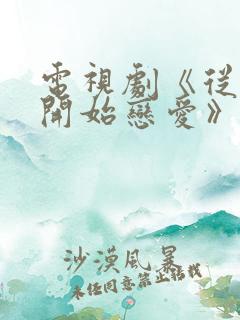 電視劇《從
開始戀愛》
沙漠風暴
未經同意禁止轉載